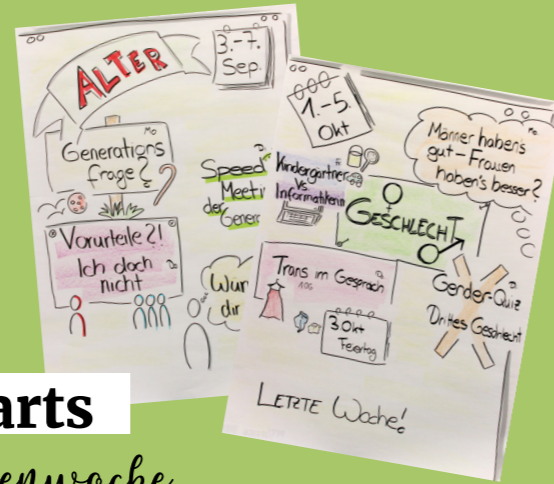 ALTER
3.-7.
Sep.
Mo
Generations
frage?
Speed
der
Vorurteile?!
Ich doch
nicht
Do
dir
1.-5.
Okt
Mo
Männer haben's
gut - Frauen
haben's besser?
Kindergärtner
vs.
Informatikerin
GESCHLECHT
Trans im Gespräch
3 Okt
Feiertag
Gender-Quiz
Drittes Geschlecht
LETZTE Woche!
arts
enwoche